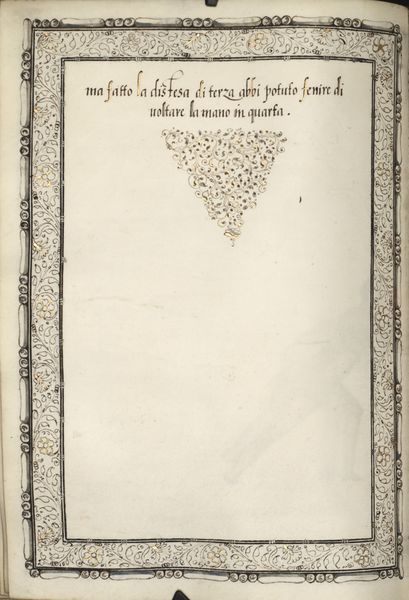 ma fatto la distesa di terza abbi potuto fenire di
voltare la mano in quarta .